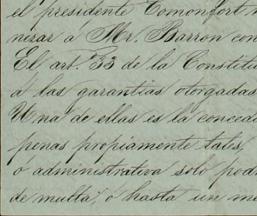 el presidente Comonfort
nizar a Mr. Barron con
El art. 33 de la Constitu
á las garantias otorgadas
Una de ellas es la conced
penas propiamente tales,
ó administrativa solo pod
de multa, ó hasta un me